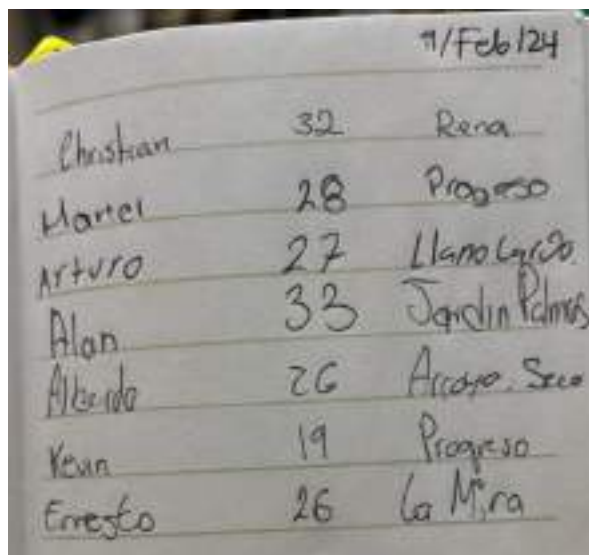 /Feb/24
Christian 32 Rena
28 Progeso
Arturo 27 Llano Largo
Alan 33 Jardin Palmas
Alberdo 26 Arroyo Seco
Kevin 19 Progreso
Ernesto 26 La Mira